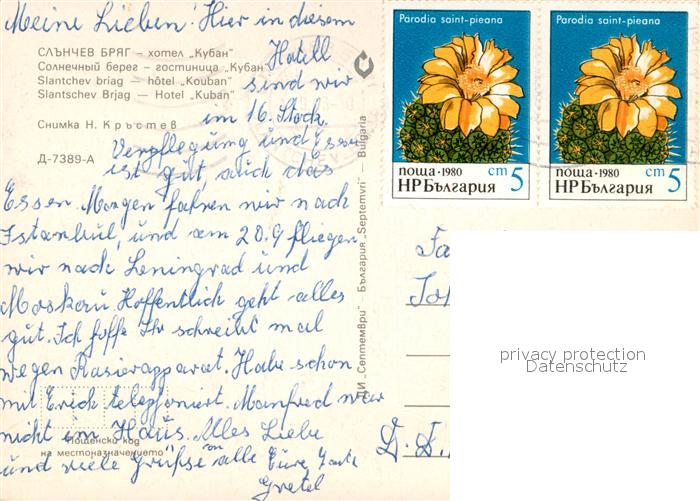 Meine Lieben! Hier in diesem
Hotell
sind wir
im 16. Stock
Verpflegung und Essen
ist gut auch das
Essen. Morgen fahren wir nach
Istanbul, und am 20.9 fliegen
wir nach Leningrad und
Moskau. Hoffentlich geht alles
gut. Ich hoffe Ihr schreibt mal
wegen Rasierapparat. Habe schon
mit Erich telefoniert. Manfred war
nicht im Haus. Alles Liebe
und viele Grüße an alle Eure Tante
Gretel
СЛЪНЧЕВ БРЯГ – хотел „Кубан"
Солнечный берег – гостиница „Кубан"
Slantchev briag – hôtel „Kouban"
Slantschev Brjag – Hotel „Kuban"
Снимка Н. Кръстев
Д-7389-А
Пощенски код
на местоназначението
ДИ „Септември" – България „Septemvri" – Bulgaria
Parodia saint-pieana
поща · 1980 cm 5
НР България
Parodia saint-pieana
поща · 1980 cm 5
НР България
Fa
Joh
privacy protection
Datenschutz